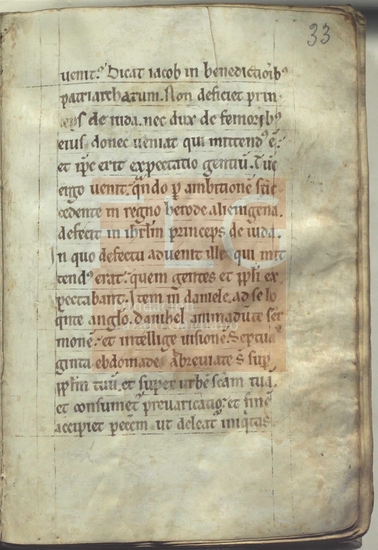 33
uenit. Dicat iacob in benedictionibꝰ
patriarcharum. Non deficiet prin
ceps de iuda. nec dux de femoribꝰ
eius, donec ueniat qui mittendꝰ ē.
et ip̄e erit expectatio gentiū. Tūc
ergo uenit. qn̄do
cedente in regno herode alienigena.
defecit in ihrl̄m princeps de iuda.
In quo defectu aduenit ille qui mit
tendꝰ erat. quem gentes et ppl̄i ex
pectabant. Item in daniele. ad se lo
q̄nte angl̄o. danihel animaduerte ser
monē. et intellige uisionē. Septua
ginta ebdomade abreuiate s̄t sup
ppl̄m tuū. et super urbē sc̄am tuā.
et consumet̄ preuaricatio. et finē
accipiet pecc̄m ut deleat̄ iniq̄tas